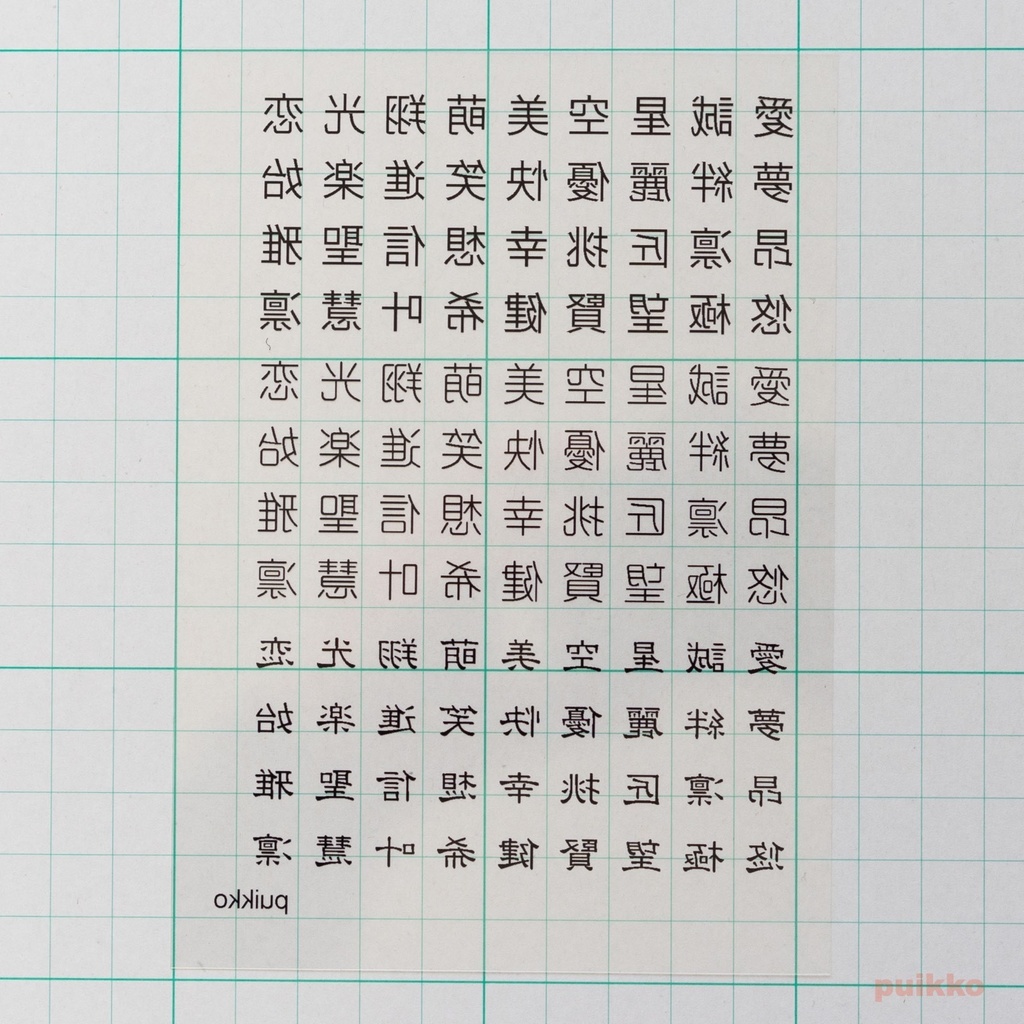 愛 誠 星 空 美 萌 翔 光 恋
夢 絆 麗 優 快 笑 進 楽 始
昂 凛 匠 挑 幸 想 信 聖 雅
悠 極 望 賢 健 希 叶 慧 凛
愛 誠 星 空 美 萌 翔 光 恋
夢 絆 麗 優 快 笑 進 楽 始
昂 凛 匠 挑 幸 想 信 聖 雅
悠 極 望 賢 健 希 叶 慧 凛
愛 誠 星 空 美 萌 翔 光 恋
夢 絆 麗 優 快 笑 進 楽 始
昂 凛 匠 挑 幸 想 信 聖 雅
悠 極 望 賢 健 希 叶 慧 凛
puikko
puikko